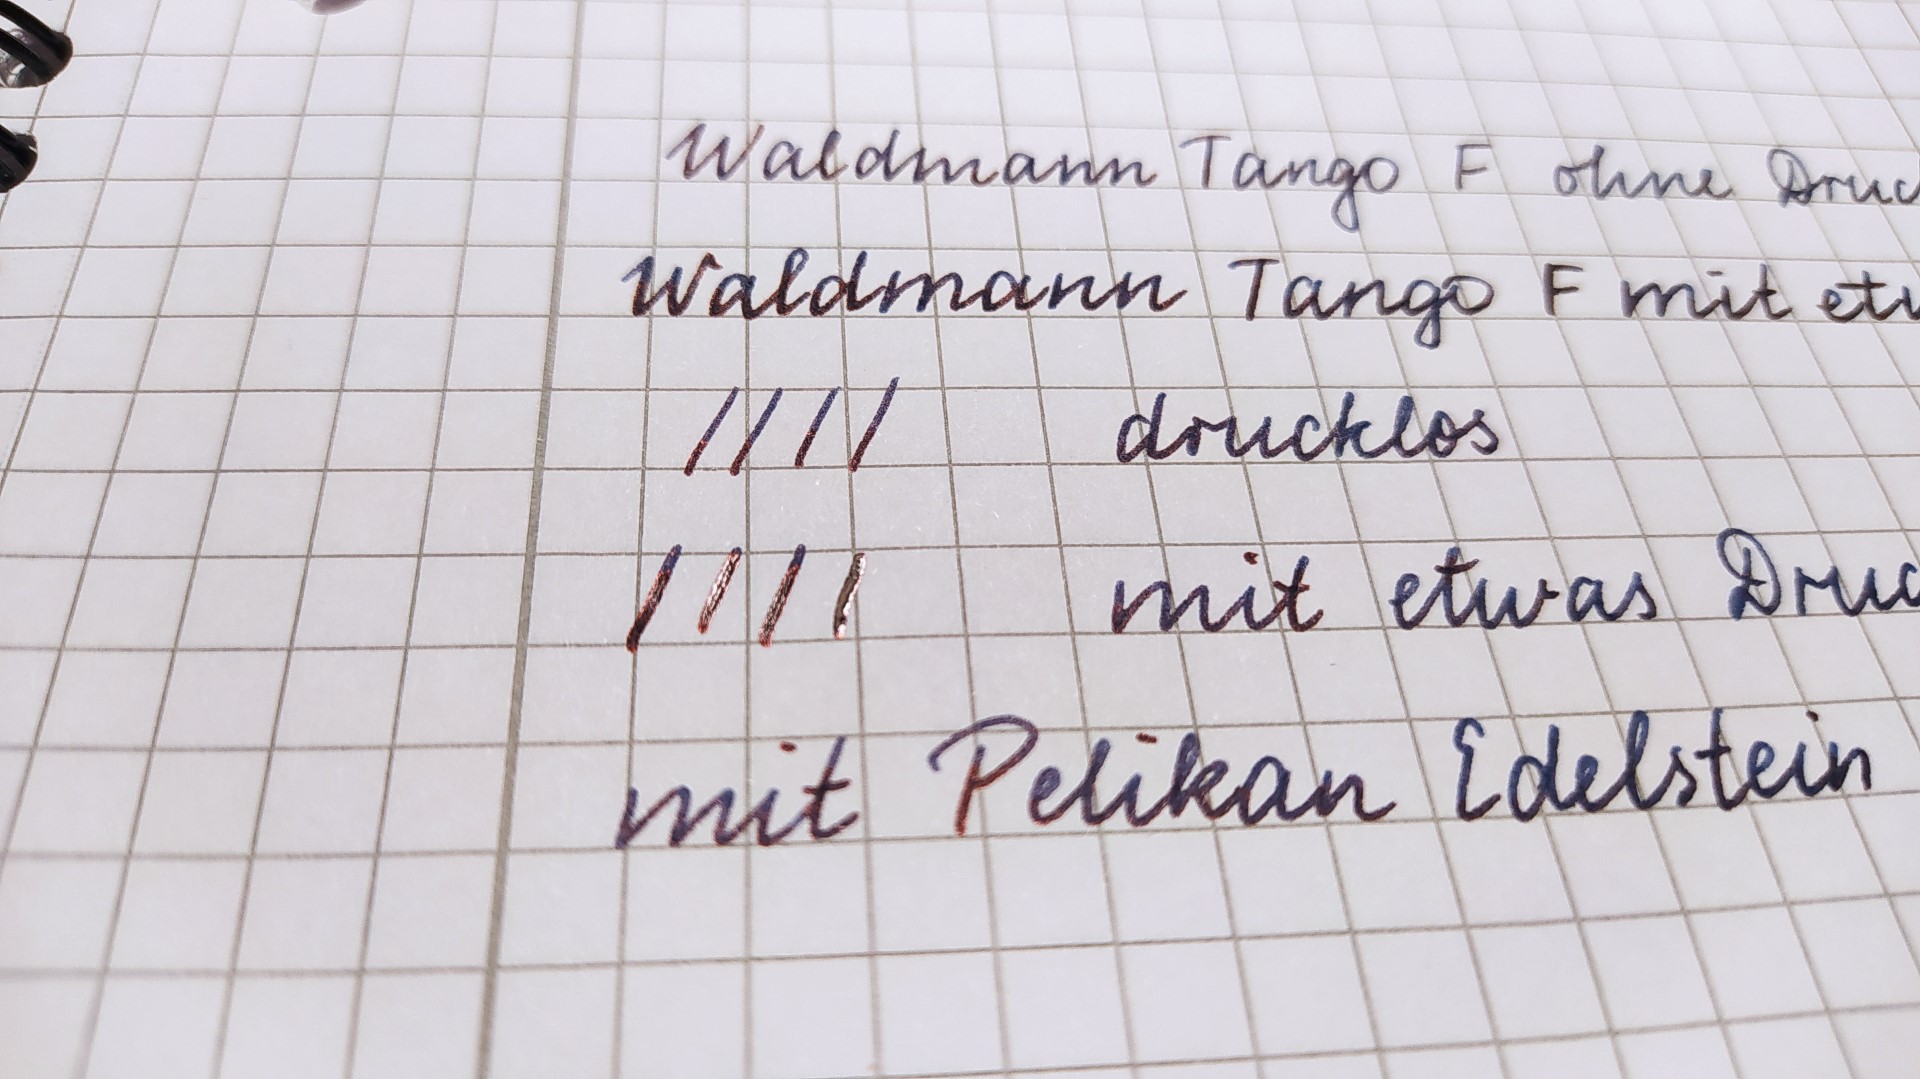 Waldmann Tango F ohne Druc
Waldmann Tango F mit etw
//// drucklos
//// mit etwas Druc
mit Pelikan Edelstein